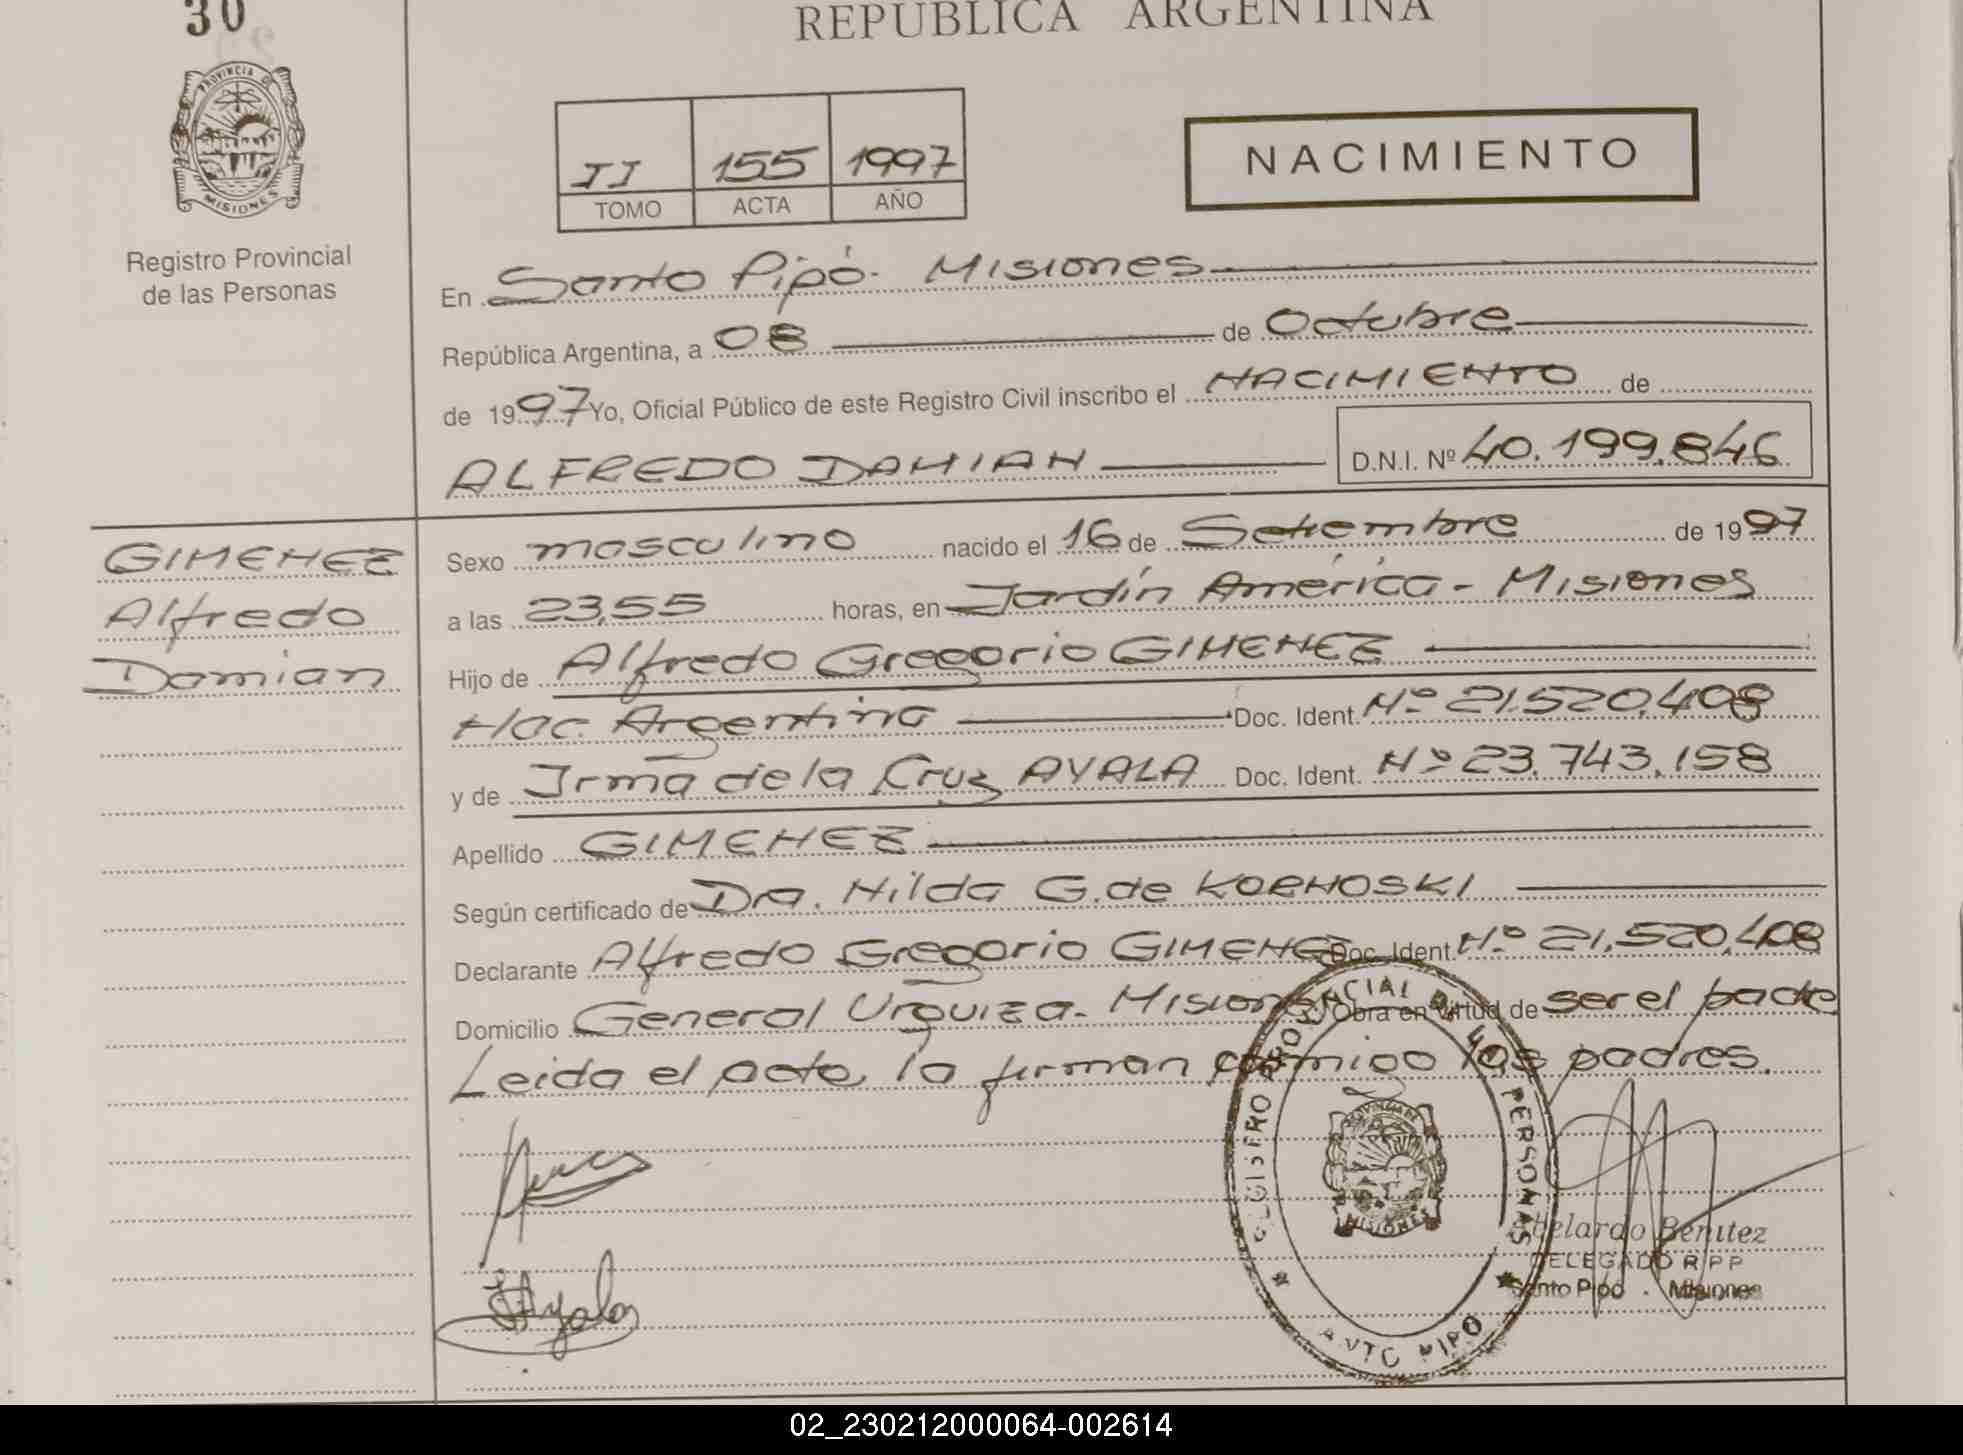 30
REPUBLICA ARGENTINA
PROVINCIA DE
MISIONES
Registro Provincial
de las Personas
II 155 1997
TOMO ACTA AÑO
NACIMIENTO
En Santo Pipó - Misiones
República Argentina, a 08 de Octubre
de 1997 Yo, Oficial Público de este Registro Civil inscribo el NACIMIENTO de
ALFREDO DAMIAN D.N.I. Nº 40.199.846
GIMENEZ
Alfredo
Damian
Sexo masculino nacido el 16 de Setiembre de 1997
a las 23,55 horas, en Jardín América - Misiones
Hijo de Alfredo Gregorio GIMENEZ
Nac. Argentina Doc. Ident. Nº 21.520.408
y de Irma de la Cruz AYALA Doc. Ident. Nº 23.743.158
Apellido GIMENEZ
Según certificado de Dra. Hilda G. de KORNOSKI
Declarante Alfredo Gregorio GIMENEZ Doc. Ident. Nº 21.520.408
Domicilio General Urquiza - Misiones Obra en virtud de ser el padre
Leida el acta, la firman conmigo los padres.
Ayala
PERSONAS
MISIONES
Abelardo Benitez
DELEGADO R P P
Santo Pipó - Misiones
02_230212000064-002614